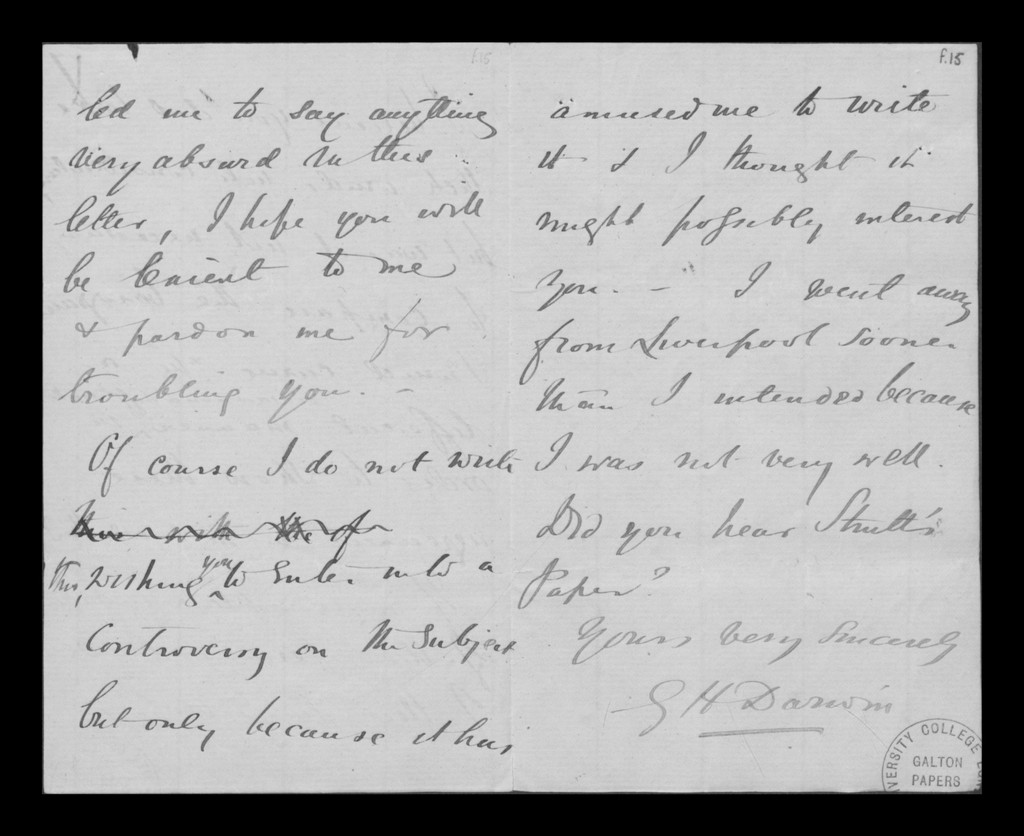 f.15
led me to say anything
very absurd in this
letter, I hope you will
be lenient to me
& pardon me for
troubling you. –
Of course I do not write
this, wishing you to enter into a
controversy on the subject
but only because it has
f.15
amused me to write
it & I thought it
might possibly interest
you. – I went away
from Liverpool sooner
than I intended because
I was not very well.
Did you hear Strutt's
Paper?
Yours very sincerely
G H Darwin
VERSITY COLLEGE
GALTON
PAPERS